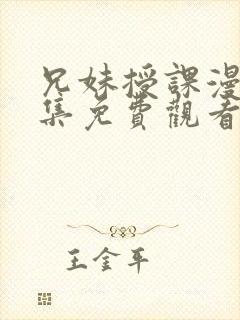 兄妹授課漫
集免費觀看
王金平